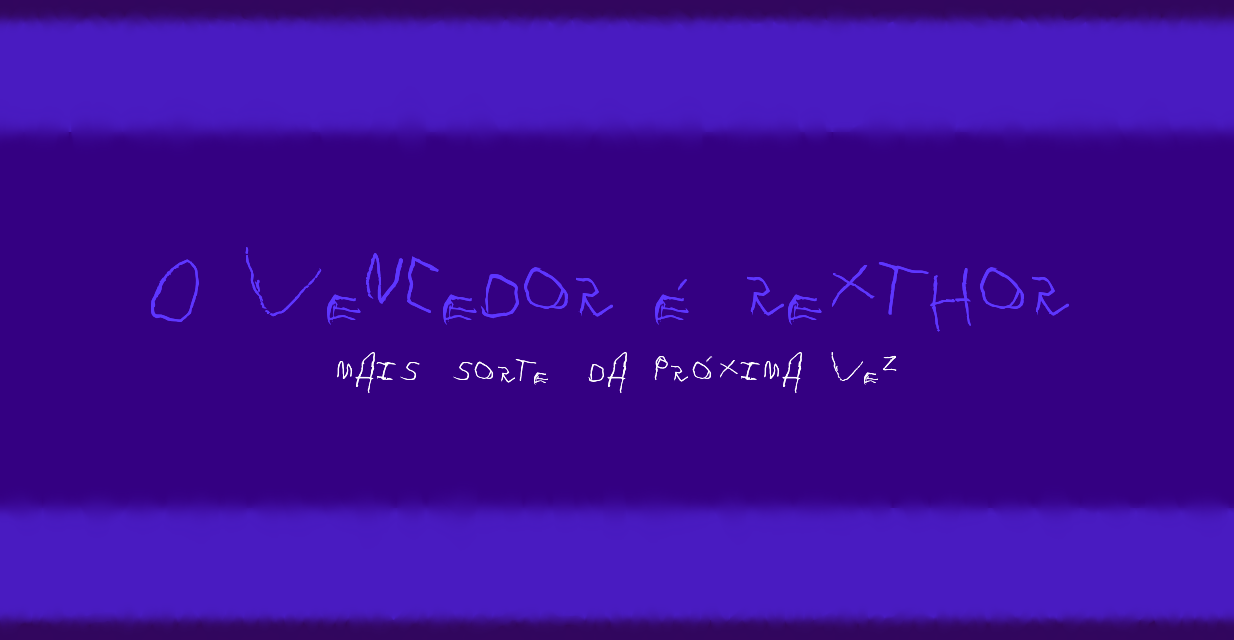 O VENCEDOR É REXTHOR
MAIS SORTE DA PRÓXIMA VEZ